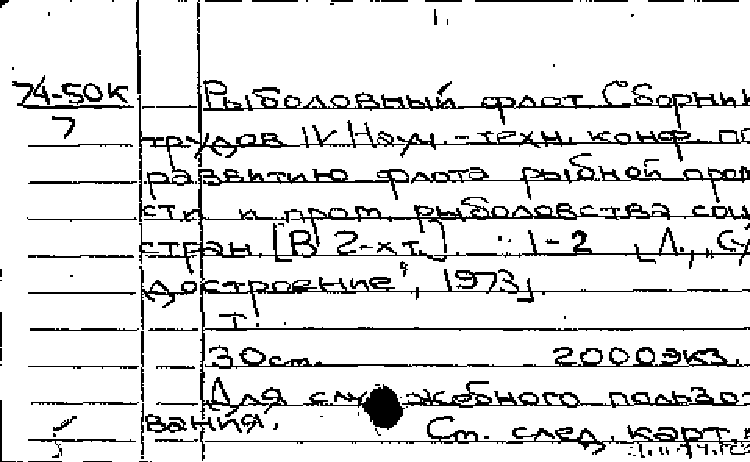 74-50К Рыболовный флот Сборник
7 трудов IV Науч.-техн. конф. по
развитию флота рыбной пром
сти и пром. рыболовства соц
стран. [В 2-х т.]. 1-2 [Л., „Су
достроение", 1973].
Т.
30см. 2000экз.
Для служебного пользо
вания.
См. след. карт.